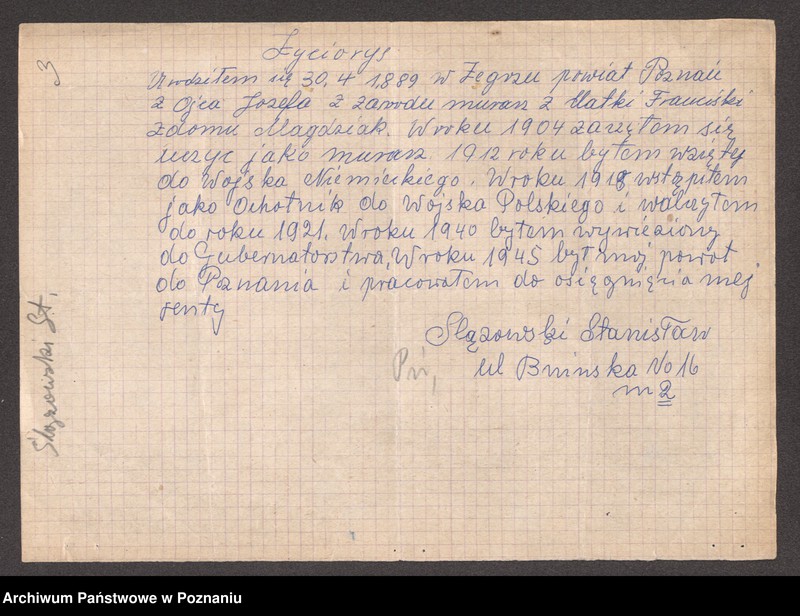 3
Życiorys
Urodziłem się 30.4 1.889 w Zegrzu powiat Poznań
z Ojca Jozefa z zawodu murarz z Matki Franciśki
zdomu Magdziak. W roku 1904 zaczętem się
uczyc jako murarz. 1912 roku byłem wzięty
do Wojska Niemieckiego. W roku 1918 wstąpiłem
jako Ochotnik do Wojska Polskiego i walczyłem
do roku 1921. W roku 1940 byłem wywieziony
do Gubernatorstwa, W roku 1945 był moj powrot
do Poznania i pracowałem do osięgnięnia mej
renty
Slązowski Stanisław
ul Bninska No 16
m 2
Pń,
Ślązowski St.
Archiwum Państwowe w Poznaniu